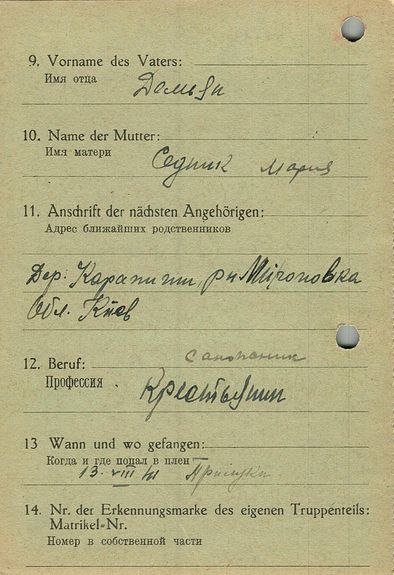 9. Vorname des Vaters:
Имя отца
Домьян
10. Name der Mutter:
Имя матери
Седник Мария
11. Anschrift der nächsten Angehörigen:
Адрес ближайших родственников
Дер. рн Мироновка
Обл. Киев
12. Beruf:
Профессия
Крестьянин
13 Wann und wo gefangen:
Когда и где попал в плен
13. VIII 41
14. Nr. der Erkennungsmarke des eigenen Truppenteils:
Matrikel-Nr.
Номер в собственной части